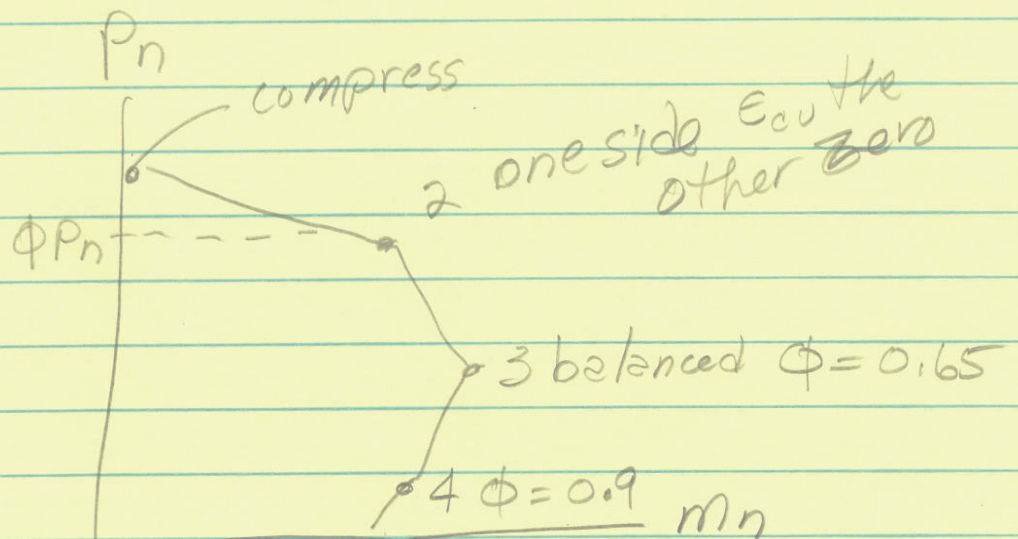 Pn
compress
2 one side εcu the
other zero
ϕPn
3 balanced ϕ = 0.65
4 ϕ = 0.9
Mn